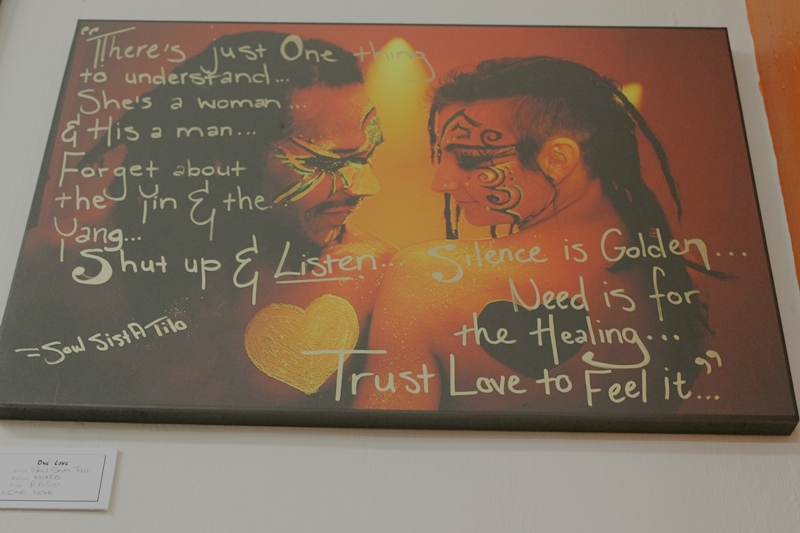 "There's just One thing
to understand...
She's a woman...
& His a man...
Forget about
the Yin & the
Yang...
Shut up & Listen... Silence is Golden...
Need is for
the Healing...
Trust Love to Feel it..."
=Soul SistA Tilo
One Love